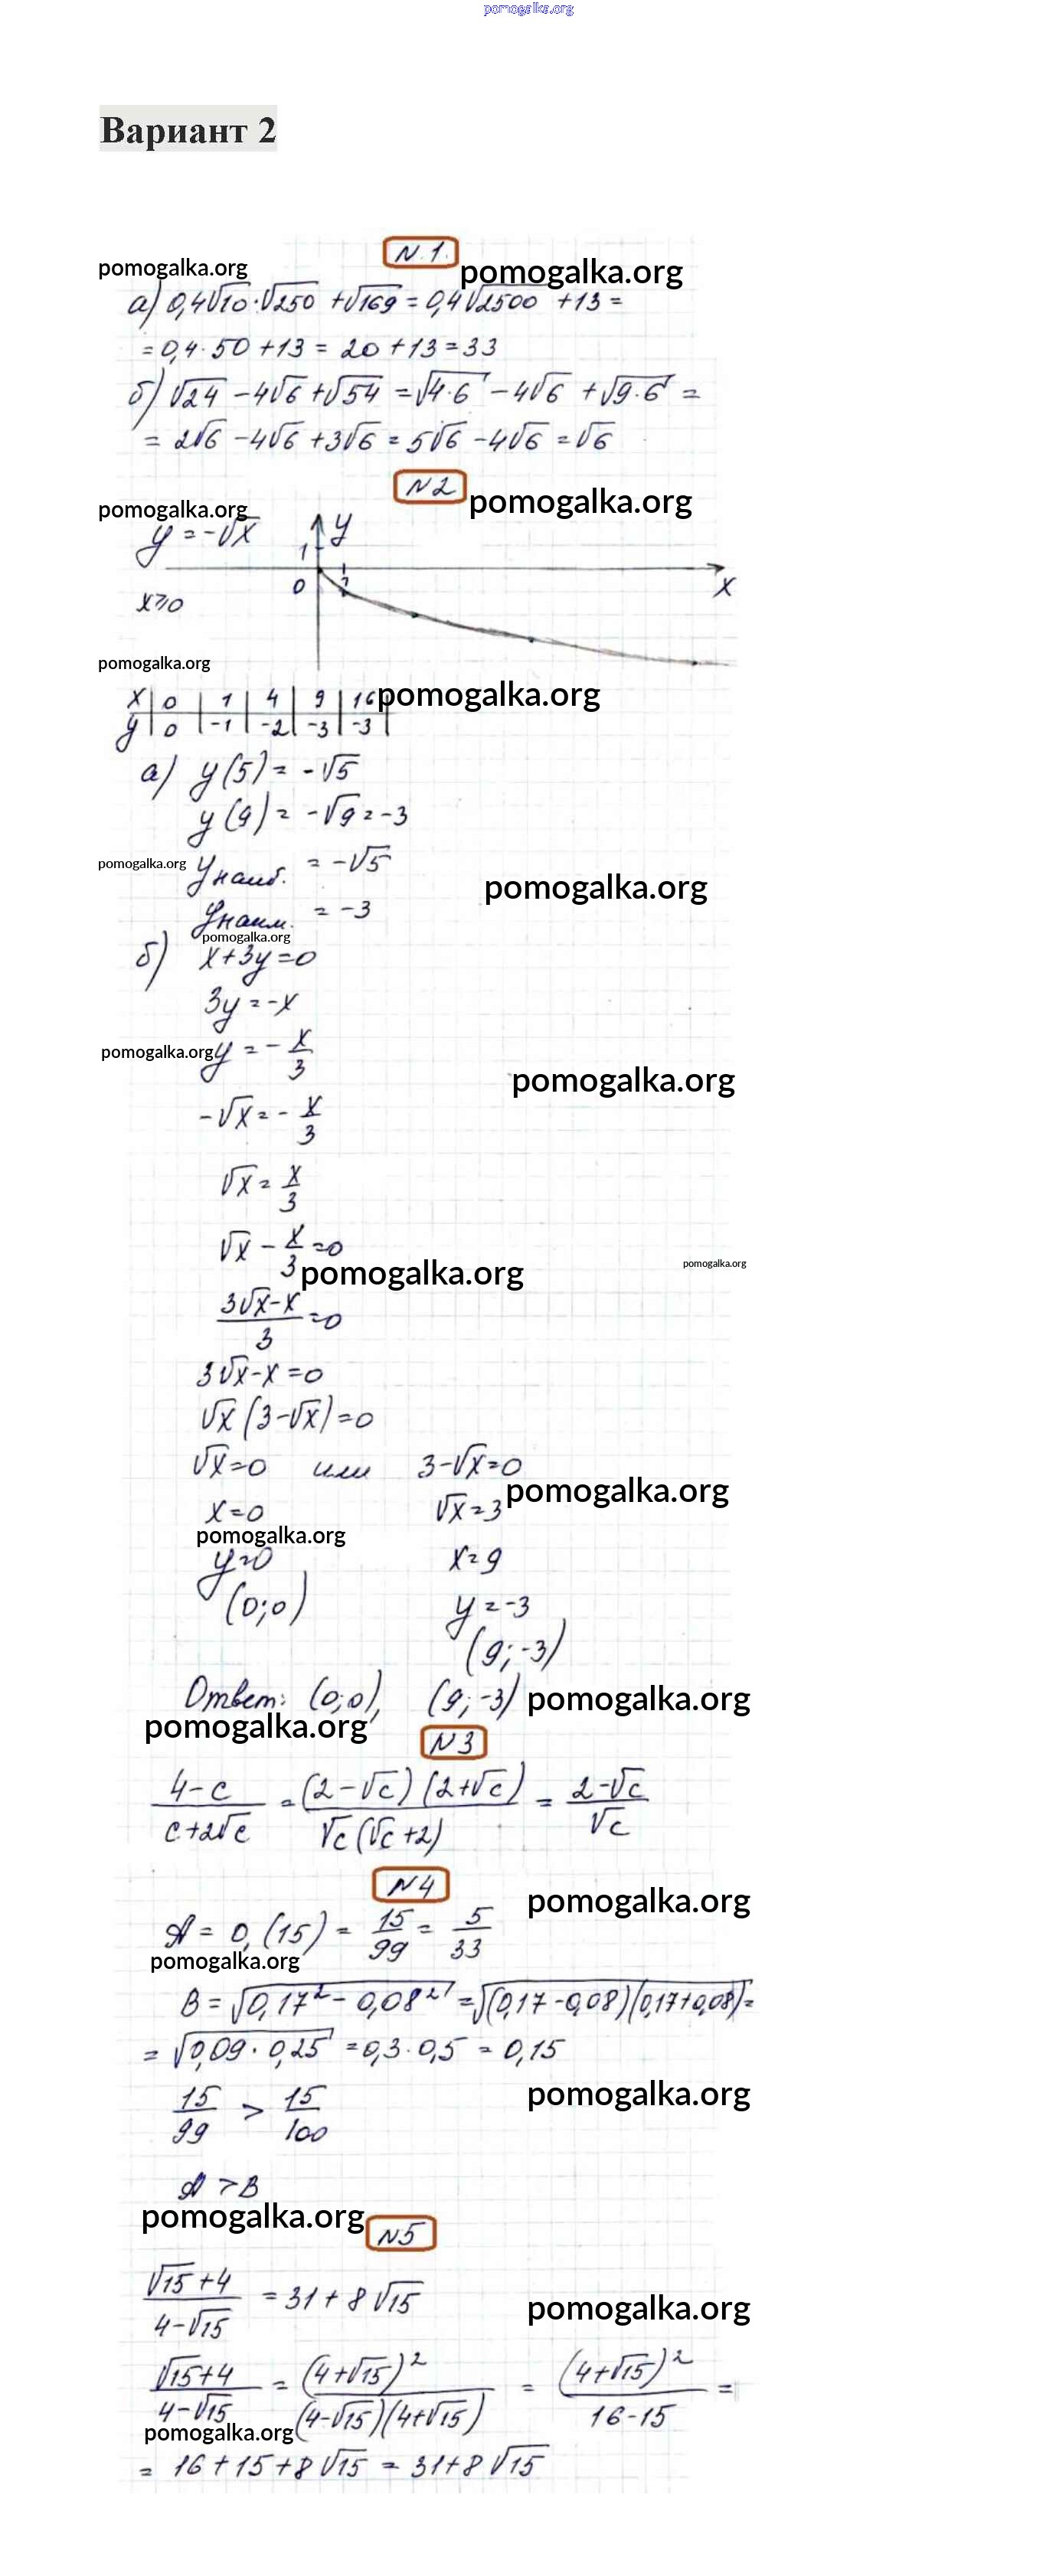 pomogalka.org
Вариант 2
N 1.
pomogalka.org pomogalka.org
а) 0,4√10·√250 + √169 = 0,4√2500 + 13 =
= 0,4·50 + 13 = 20 + 13 = 33
б) √24 - 4√6 + √54 = √4·6 - 4√6 + √9·6 =
= 2√6 - 4√6 + 3√6 = 5√6 - 4√6 = √6
N2
pomogalka.org pomogalka.org
y = -√x
y
1
0 1
x
x⩾0
pomogalka.org
pomogalka.org
x | 0 | 1 | 4 | 9 | 16 |
y | 0 | -1 | -2 | -3 | -3 |
а) y(5) = -√5
y(9) = -√9 = -3
pomogalka.org
yнаиб. = -√5
pomogalka.org
yнаим. = -3
pomogalka.org
б) x+3y=0
3y = -x
pomogalka.org
y = - x/3
pomogalka.org
-√x = - x/3
√x = x/3
√x - x/3 = 0
pomogalka.org
pomogalka.org
(3√x-x)/3 = 0
3√x-x=0
√x(3-√x)=0
√x=0 или 3-√x=0
pomogalka.org
x=0 √x=3
pomogalka.org
y=0 x=9
(0;0) y=-3
(9;-3)
Ответ: (0;0), (9;-3)
pomogalka.org
pomogalka.org
N3
(4-c)/(c+2√c) = (2-√c)(2+√c)/(√c(√c+2)) = (2-√c)/√c
N4
pomogalka.org
A = 0,(15) = 15/99 = 5/33
pomogalka.org
B = √(0,17² - 0,08²) = √((0,17-0,08)(0,17+0,08)) =
= √(0,09·0,25) = 0,3·0,5 = 0,15
pomogalka.org
15/99 > 15/100
A > B
pomogalka.org
N5
(√15+4)/(4-√15) = 31 + 8√15
pomogalka.org
(√15+4)/(4-√15) = (4+√15)²/((4-√15)(4+√15)) = (4+√15)²/(16-15) =
pomogalka.org
= 16+15+8√15 = 31+8√15